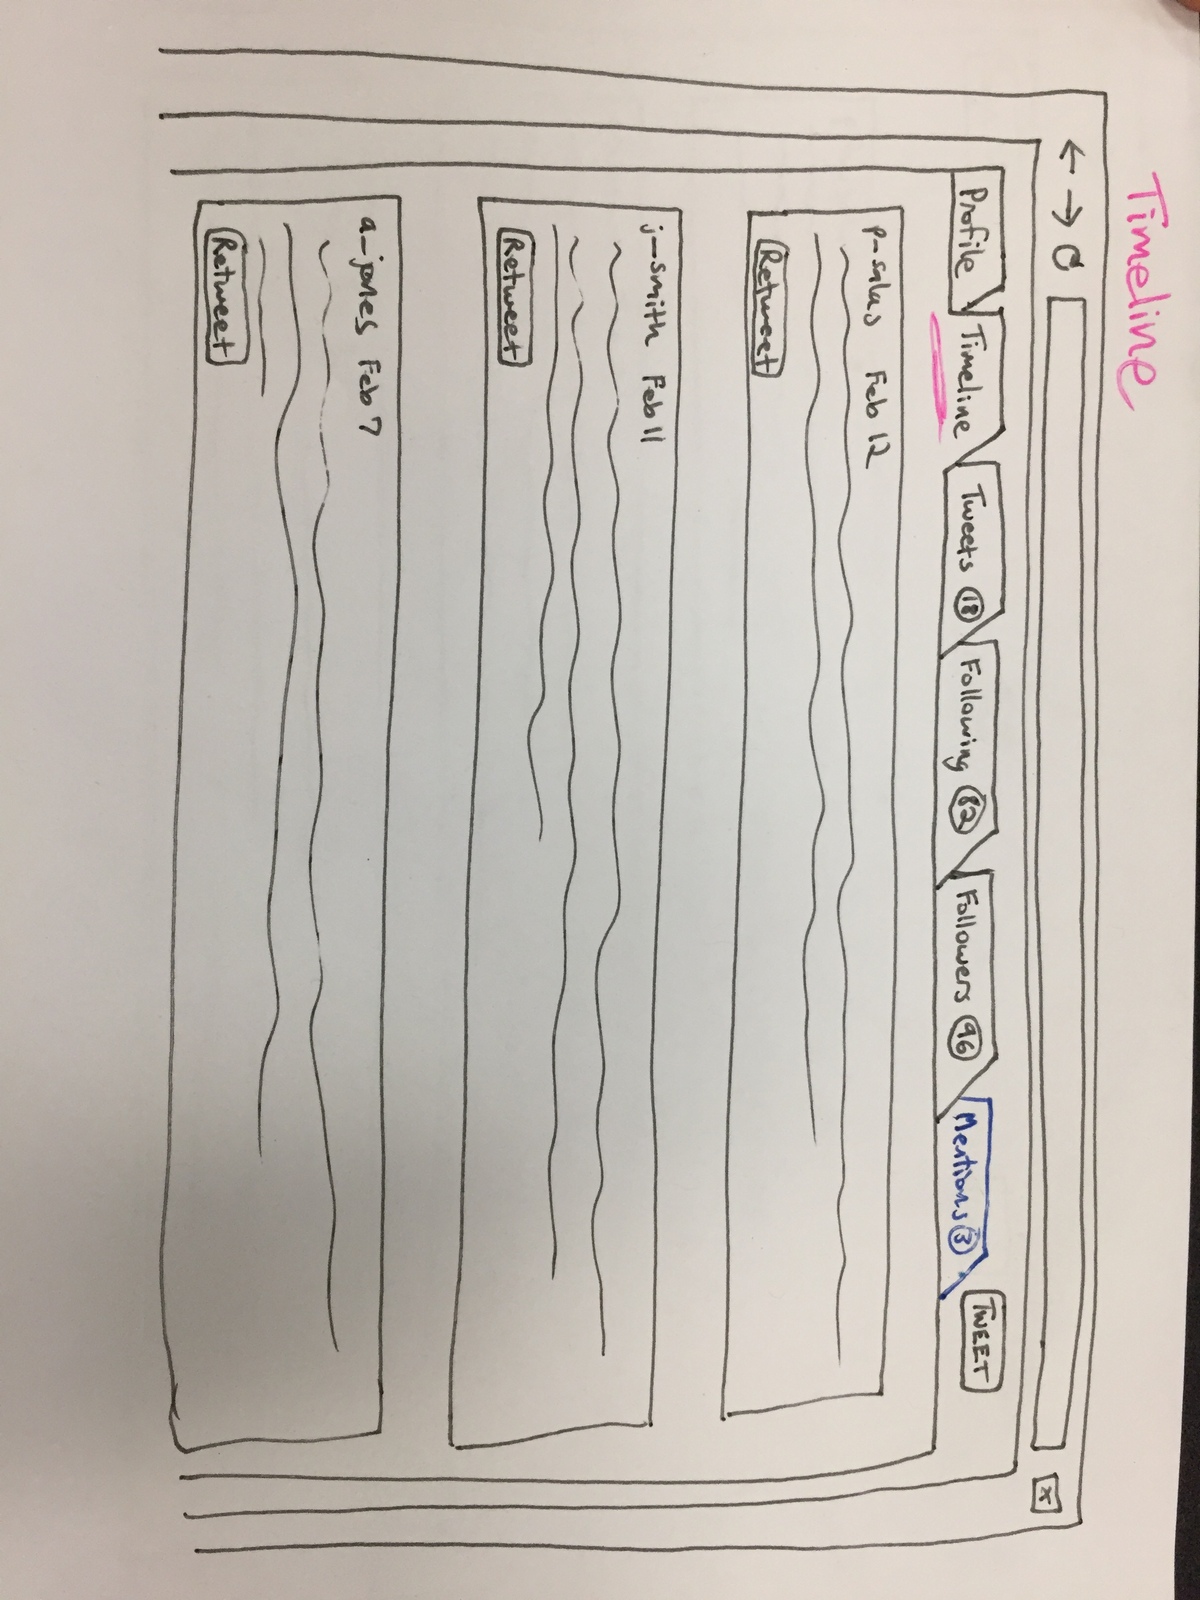 Timeline
x
Profile Timeline Tweets 18 Following 82 Followers 96 Mentions 3 TWEET
p-salas Feb 12
Retweet
j-smith Feb 11
Retweet
a-jones Feb 7
Retweet